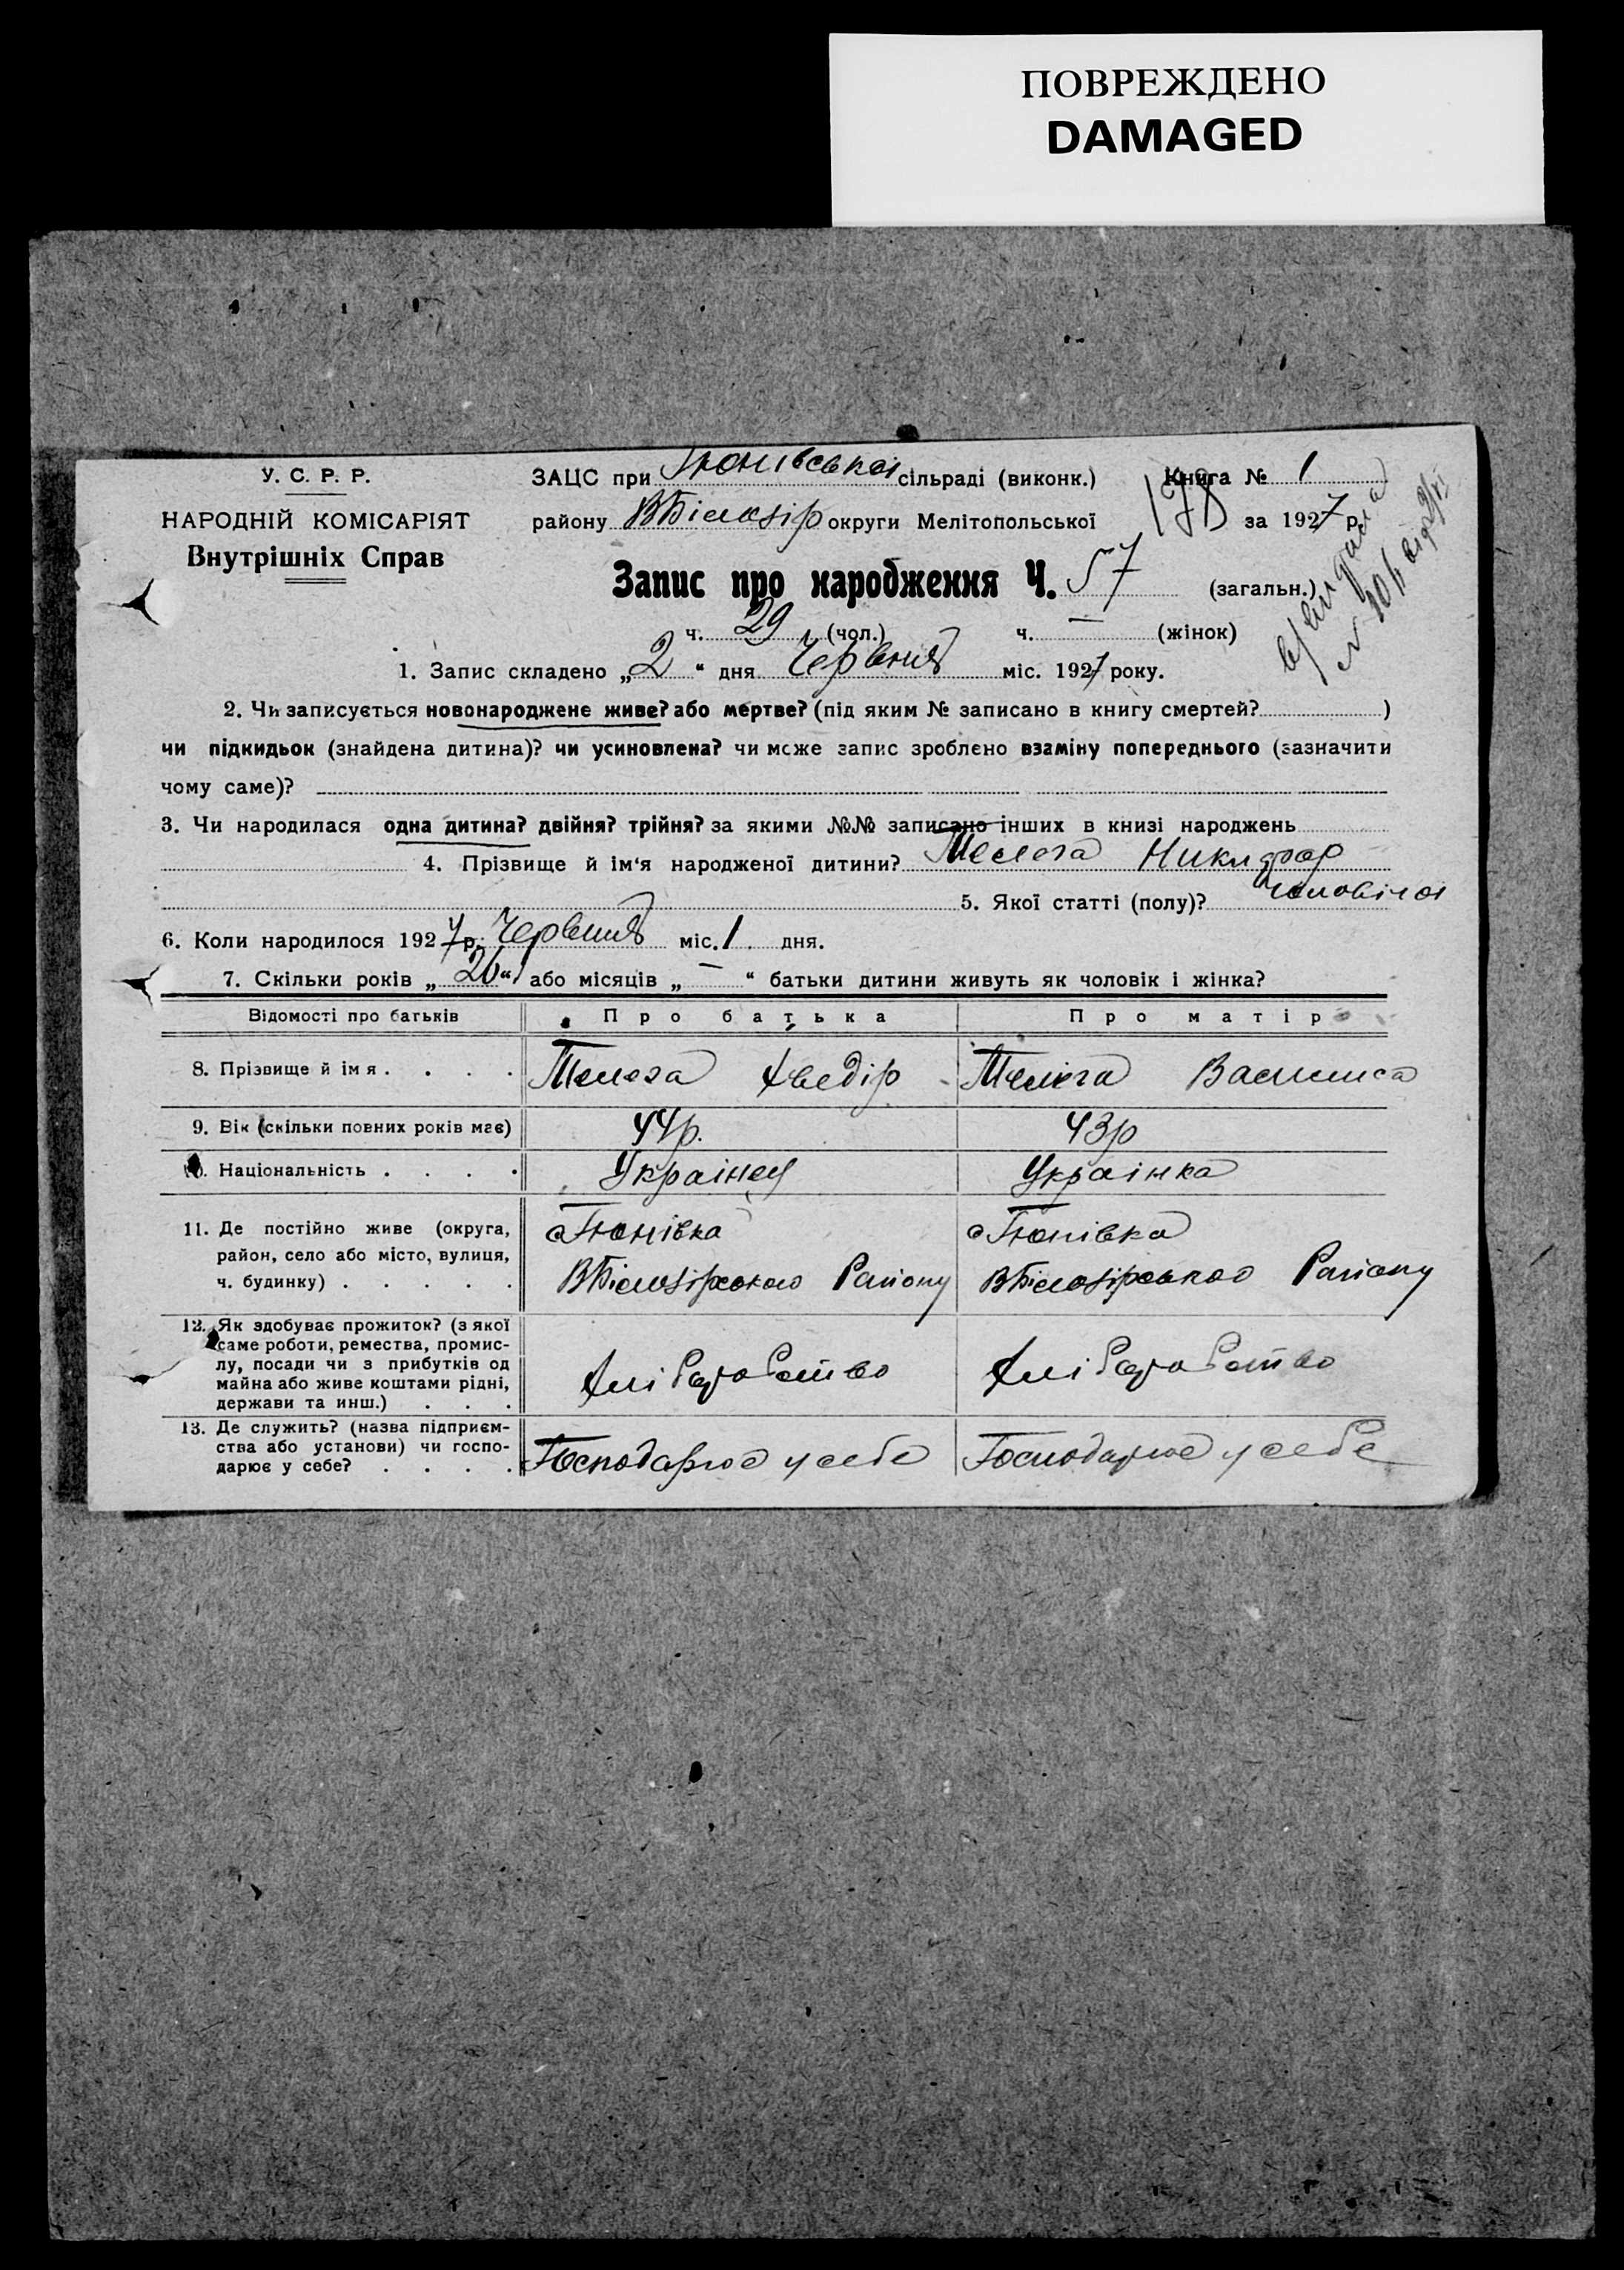 ПОВРЕЖДЕНО
DAMAGED
У. С. Р. Р.
НАРОДНІЙ КОМІСАРІЯТ
Внутрішніх Справ
ЗАЦС при Тюнівській сільраді (виконк.)
району ВБілозір округи Мелітопольської
Книга № 1
178
за 1927 р.
Запис про народження Ч. 57 (загальн.)
ч. 29 (чол.) ч. — (жінок)
1. Запис складено „ 2 “ дня Червня міс. 1927 року.
2. Чи записується новонароджене живе? або мертве? (під яким № записано в книгу смертей? )
чи підкидьок (знайдена дитина)? чи усиновлена? чи може запис зроблено взаміну попереднього (зазначити
чому саме)?
3. Чи народилася одна дитина? двійня? трійня? за якими №№ записано інших в книзі народжень
4. Прізвище й ім‘я народженої дитини? Телега Никифор
5. Якої статті (полу)? Чоловічої
6. Коли народилося 1927 р. Червня міс. 1 дня.
7. Скільки років „ 26 “ або місяців „ — “ батьки дитини живуть як чоловік і жінка?
Відомості про батьків Про батька Про матір
8. Прізвище й ім я . . . . Телега Хведір Телега Василиса
9. Вік (скільки повних років має) 44р. 43р
10. Національність . . . . Українец Українка
11. Де постійно живе (округа,
район, село або місто, вулиця,
ч. будинку) . . . . .
с Тюнівка
ВБілозірського Району
с Тюнівка
ВБілозірського Району
12. Як здобуває прожиток? (з якої
саме роботи, ремества, промис-
лу, посади чи з прибутків од
майна або живе коштами рідні,
держави та инш.) . . .
Хліборобство
Хліборобство
13. Де служить? (назва підприєм-
ства або установи) чи госпо-
дарює у себе? . . . .
Господарює у себе
Господарює у себе